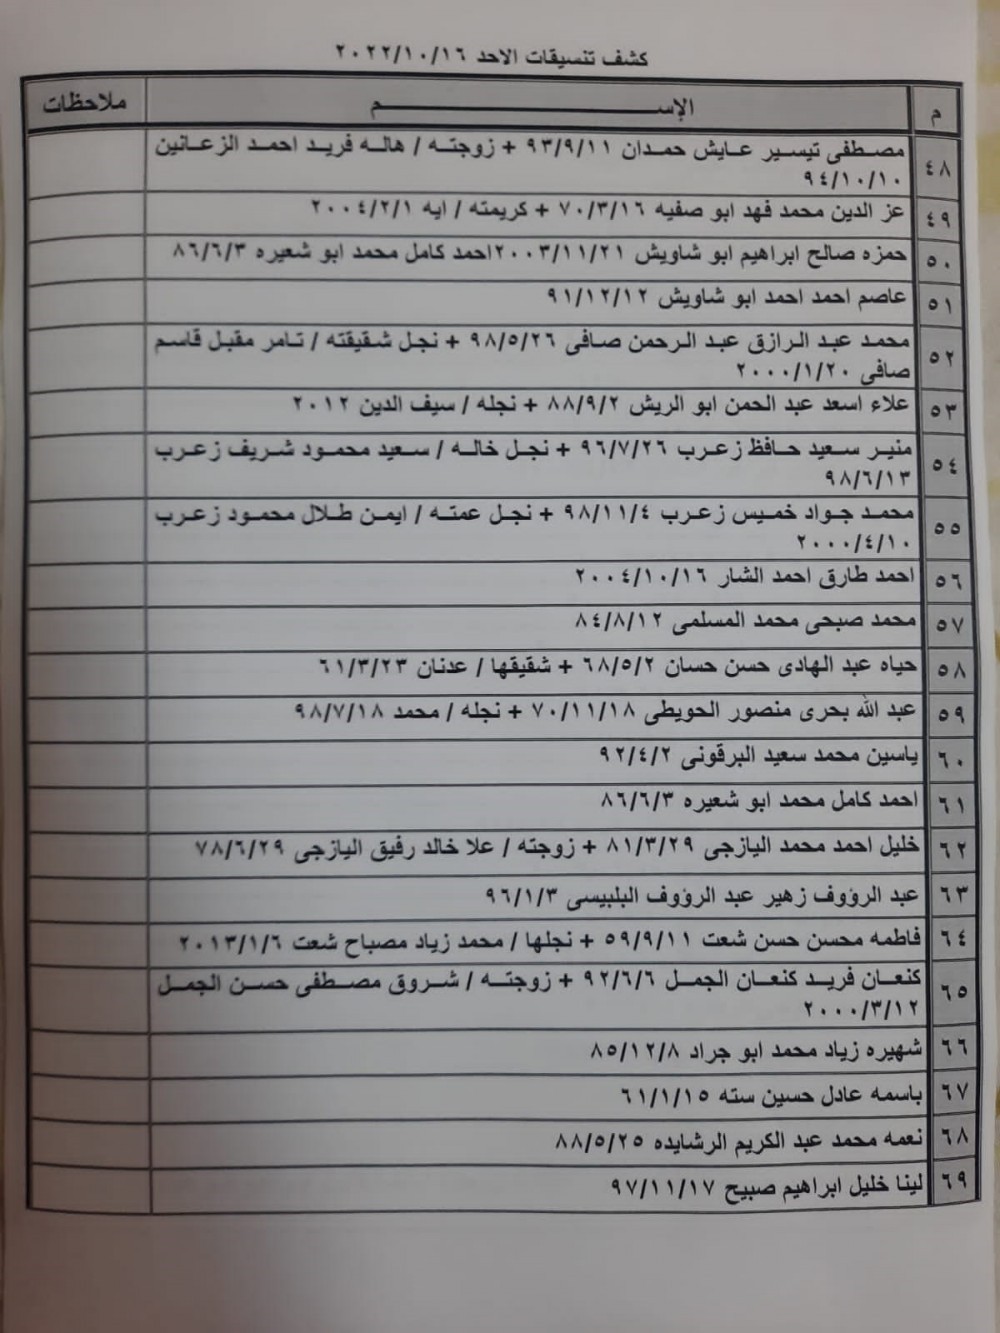 كشف تنسيقات الاحد ٢٠٢٢/١٠/١٦
م الإســـــم ملاحظات
٤٨ مصطفى تيسير عايش حمدان ٩٣/٩/١١ + زوجته / هاله فريد احمد الزعانين
٩٤/١٠/١٠
٤٩ عز الدين محمد فهد ابو صفيه ٧٠/٣/١٦ + كريمته / ايه ٢٠٠٤/٢/١
٥٠ حمزه صالح ابراهيم ابو شاويش ٢٠٠٣/١١/٢١احمد كامل محمد ابو شعيره ٨٦/٦/٣
٥١ عاصم احمد احمد ابو شاويش ٩١/١٢/١٢
٥٢ محمد عبد الرازق عبد الرحمن صافى ٩٨/٥/٢٦ + نجل شقيقته / تامر مقبل قاسم
صافى ٢٠٠٠/١/٢٠
٥٣ علاء اسعد عبد الحمن ابو الريش ٨٨/٩/٢ + نجله / سيف الدين ٢٠١٢
٥٤ منير سعيد حافظ زعرب ٩٦/٧/٢٦ + نجل خاله / سعيد محمود شريف زعرب
٩٨/٦/١٣
٥٥ محمد جواد خميس زعرب ٩٨/١١/٤ + نجل عمته / ايمن طلال محمود زعرب
٢٠٠٠/٤/١٠
٥٦ احمد طارق احمد الشار ٢٠٠٤/١٠/١٦
٥٧ محمد صبحى محمد المسلمى ٨٤/٨/١٢
٥٨ حياه عبد الهادى حسن حسان ٦٨/٥/٢ + شقيقها / عدنان ٦١/٣/٢٣
٥٩ عبد الله بحرى منصور الحويطى ٧٠/١١/١٨ + نجله / محمد ٩٨/٧/١٨
٦٠ ياسين محمد سعيد البرقونى ٩٢/٤/٢
٦١ احمد كامل محمد ابو شعيره ٨٦/٦/٣
٦٢ خليل احمد محمد اليازجى ٨١/٣/٢٩ + زوجته / علا خالد رفيق اليازجى ٧٨/٦/٢٩
٦٣ عبد الرؤوف زهير عبد الرؤوف البلبيسى ٩٦/١/٣
٦٤ فاطمه محسن حسن شعت ٥٩/٩/١١ + نجلها / محمد زياد مصباح شعت ٢٠١٣/١/٦
٦٥ كنعان فريد كنعان الجمل ٩٢/٦/٦ + زوجته / شروق مصطفى حسن الجمل
٢٠٠٠/٣/١٢
٦٦ شهيره زياد محمد ابو جراد ٨٥/١٢/٨
٦٧ باسمه عادل حسين سته ٦١/١/١٥
٦٨ نعمه محمد عبد الكريم الرشايده ٨٨/٥/٢٥
٦٩ لينا خليل ابراهيم صبيح ٩٧/١١/١٧